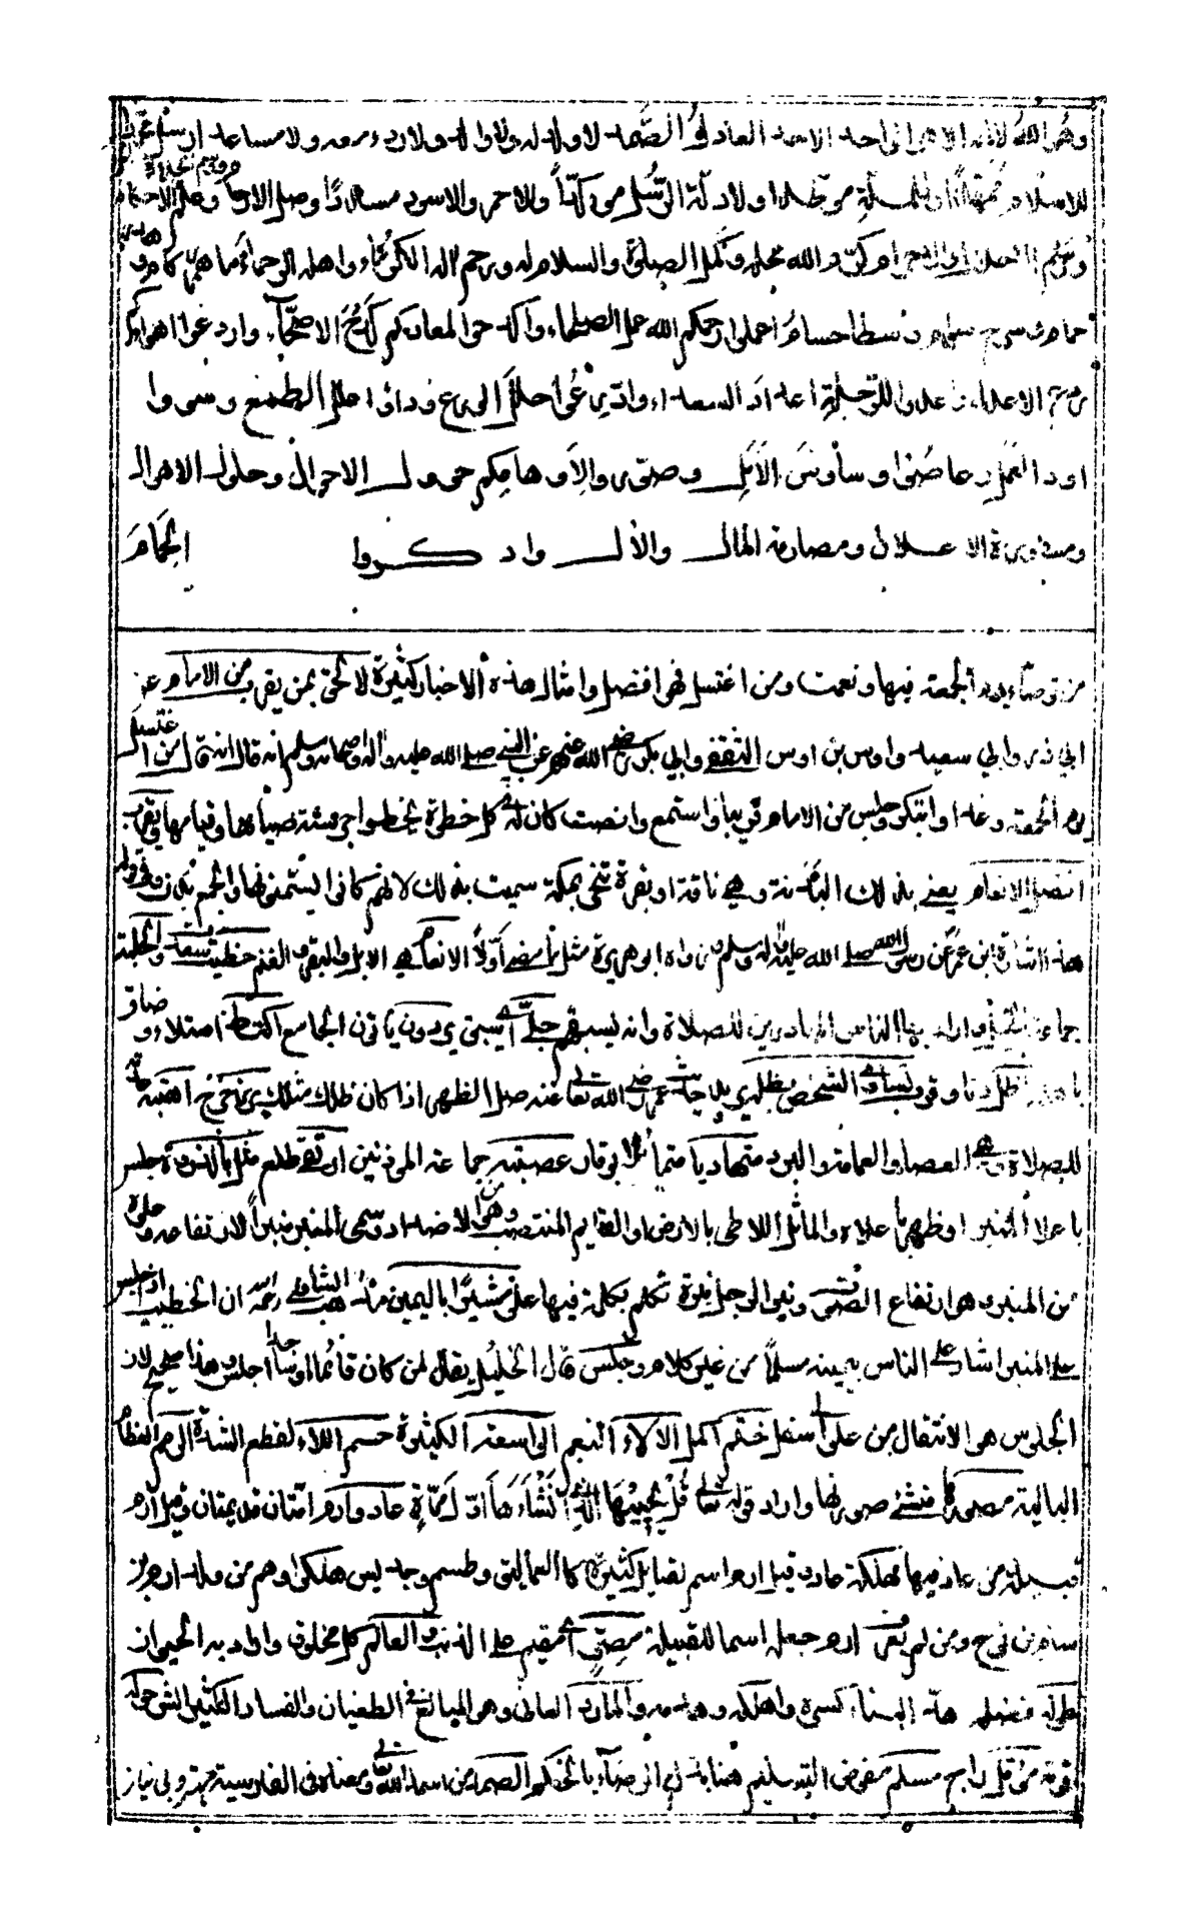 وهو الله لا اله الا هو الواحد الاحد العادل الصمد لا ولد له ولا والد ولا ردء معه ولا مساعد ارسل محمدا
للاسلام ممهدا وللملة موطدا ولادلة الرسل موكدا وللاحمر والاسود مسددا وصل الارحام وعلم الاحكام
ووسم الحلال والحرام كرم الله محله وكمل الصلوة والسلام له ورحم اله الكرماء واهله الرحماء ما همر ركام وهدر
حمام وسرح سوام وسطا حسام اعملوا رحمكم الله عمل الصلحاء واكدحوا لمعادكم كدح الاصحاء واردعوا اهواءكم
ردع الاعداء واعدوا للرحلة اعداد السعداء وادرعوا حلل الورع وداووا علل الطمع وسووا
اود العمل وعاصوا وساوس الامل وصوروا لاوهامكم حوول الاحوال وحلول الاهوال
ومساورة الاعلال ومصارمة المال والال وادكروا الحمام
من توضاء يوم الجمعة فبها ونعمت ومن اغتسل فهو افضل وامثال هذه الاخبار كثيرة لا تخفى بمن يقرب من الامام عن
ابي ذر وابي سعيد واوس بن اوس الثقفي وابي بكر رضي الله عنهم عن النبي صلى الله عليه واله واصحابه وسلم انه قال انه قال من اغتسل
يوم الجمعة وغدا وابتكر وجلس من الامام قريبا واستمع وانصت كان له بكل خطوة يخطوا اجر سنة صيامها وقيامها ويقرب
افضل الانعام يعني بذلك البدنة وهي ناقة او بقرة تنحر بمكة سميت بذلك لانهم كانوا يستمنونها والجمع بدن وفي قوله
هذا اشارة ابن عمر عن رسول الله صلى الله عليه واله وسلم رواه ابو هريرة مثل ما مضى اولا الانعام هي الابل والبقر والغنم حظيت سعدت والحلبة
جماعة الخيل واراد بها الناس المبادرين للصلاة وانه يسبقهم جلى اي سبق يردون ياتون الجامع اكتظ امتلاء وضاق
باهله اظل دنا وقرب تساوي الشخص وظله يريد حديث عمر رضي الله تعالى عنه صل الظهر اذا كان ظلك مثلك برز خرج اهبته
للصلاة وهي العصا والعمامة والبرد متهاديا متمايلا بوقار عصبته جماعة المؤذنين ارتقى طلع مثل بالذروة جلس
باعلا المنبر او ظهر باعلاه والماثل اللاطي بالارض والقايم المنتصب وهو من الاضداد وسمي المنبر منبرا لارتفاعه وعلوه
من المنبر وهو ارتفاع الصوت ونبر الرجل نبرة تكلم بكلمة فيها علو مشيرا باليمين مذهب الشافعي رحمه الله ان الخطيب اذا جلس
على المنبر اشار على الناس بيمينه مسلما من غير كلام وجلس قال الخليل يقال لمن كان قائما او ساجدا اجلس وهذا صحيح لان
الجلوس هو الانتقال من علو الى اسفل ختم اكمل الالاء النعم الواسعة الكثيرة حسم اللاواء لقطع الشدة الرمم العظام
البالية مصورها منشئ صورها واراد قوله تعالى قل يحييها الذي انشاءها اول مرة عاد وارم امتان قديمتان وقيل ارم
قبيلة من عاد فيها مملكة عاد وقيل ارم اسم لقبايل كثيرة كالعماليق وطسم وجديس هلكوا وهم من ولد ارم بن
سام بن نوح ومن لم يقرا ارم جعله اسما للقبيلة مصر اي مقيم على الذنب والعالم كل مخلوق واراد به الحيوان
طوله فضله هد البناء كسره واهلكه وهدمه والمارد العاتي وهو المبالغ في الطغيان والفساد الكثير الشر حوله
قوته موئل راج مسلم مفوض التسليم هنا بمعنى الرضاء بالحكم الصمد من اسماء الله تعالى ومعناه في الفارسية مهتر وبي نياز